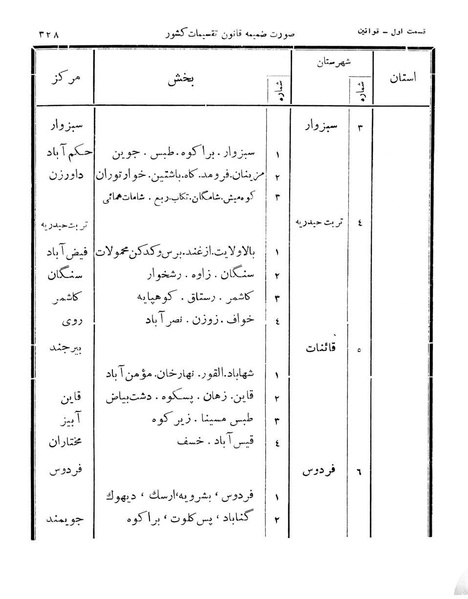 قسمت اول - قوانین صورت ضمیمه قانون تقسیمات کشور ۳۲۸
استان شهرستان شماره بخش شماره مرکز
۳ سبزوار سبزوار
۱ سبزوار . براکوه . طبس . جوین حکم آباد
۲ مزینان . فرومد . کاه . باشتین . خوارتوران داورزن
۳ کوه میش . شامگان . تکاب . ربع . شامات همائی
٤ تربت حیدریه تربت حیدریه
۱ بالاولایت . ازغند . برس و کدکن محمولات فیض آباد
۲ سنگان . زاوه . رشخوار سنگان
۳ کاشمر . رستاق . کوهپایه کاشمر
٤ خواف . زوزن . نصر آباد روی
۵ قائنات بیرجند
۱ شهاباد . القور . نهارخان . مؤمن آباد
۲ قاین . زهان . پسکوه . دشت بیاض قاین
۳ طبس مسینا . زیر کوه آبیز
٤ قیس آباد . خسف مختاران
٦ فردوس فردوس
۱ فردوس ، بشرویه ، ارسك . دیهوك
۲ گناباد ، پس کلوت ، براکوه جویمند